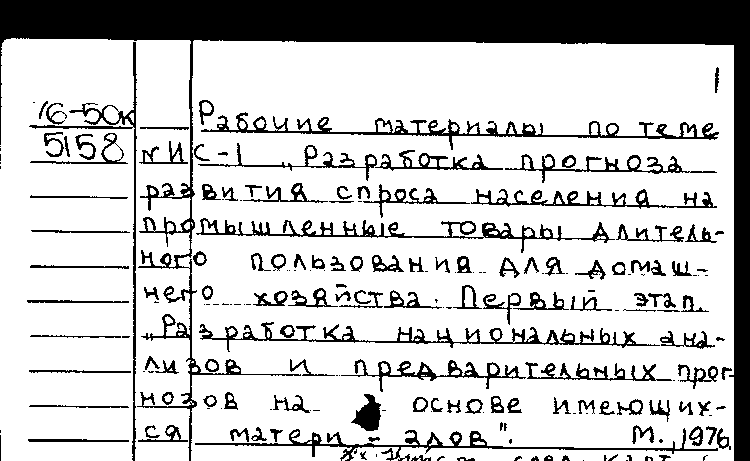 1
76-50к Рабочие материалы по теме
5158 НИС-1 „Разработка прогноза
развития спроса населения на
промышленные товары длитель-
ного пользования для домаш-
него хозяйства. Первый этап.
„Разработка национальных ана-
лизов и предварительных прог-
нозов на основе имеющих-
ся матери-алов". М., 1976.